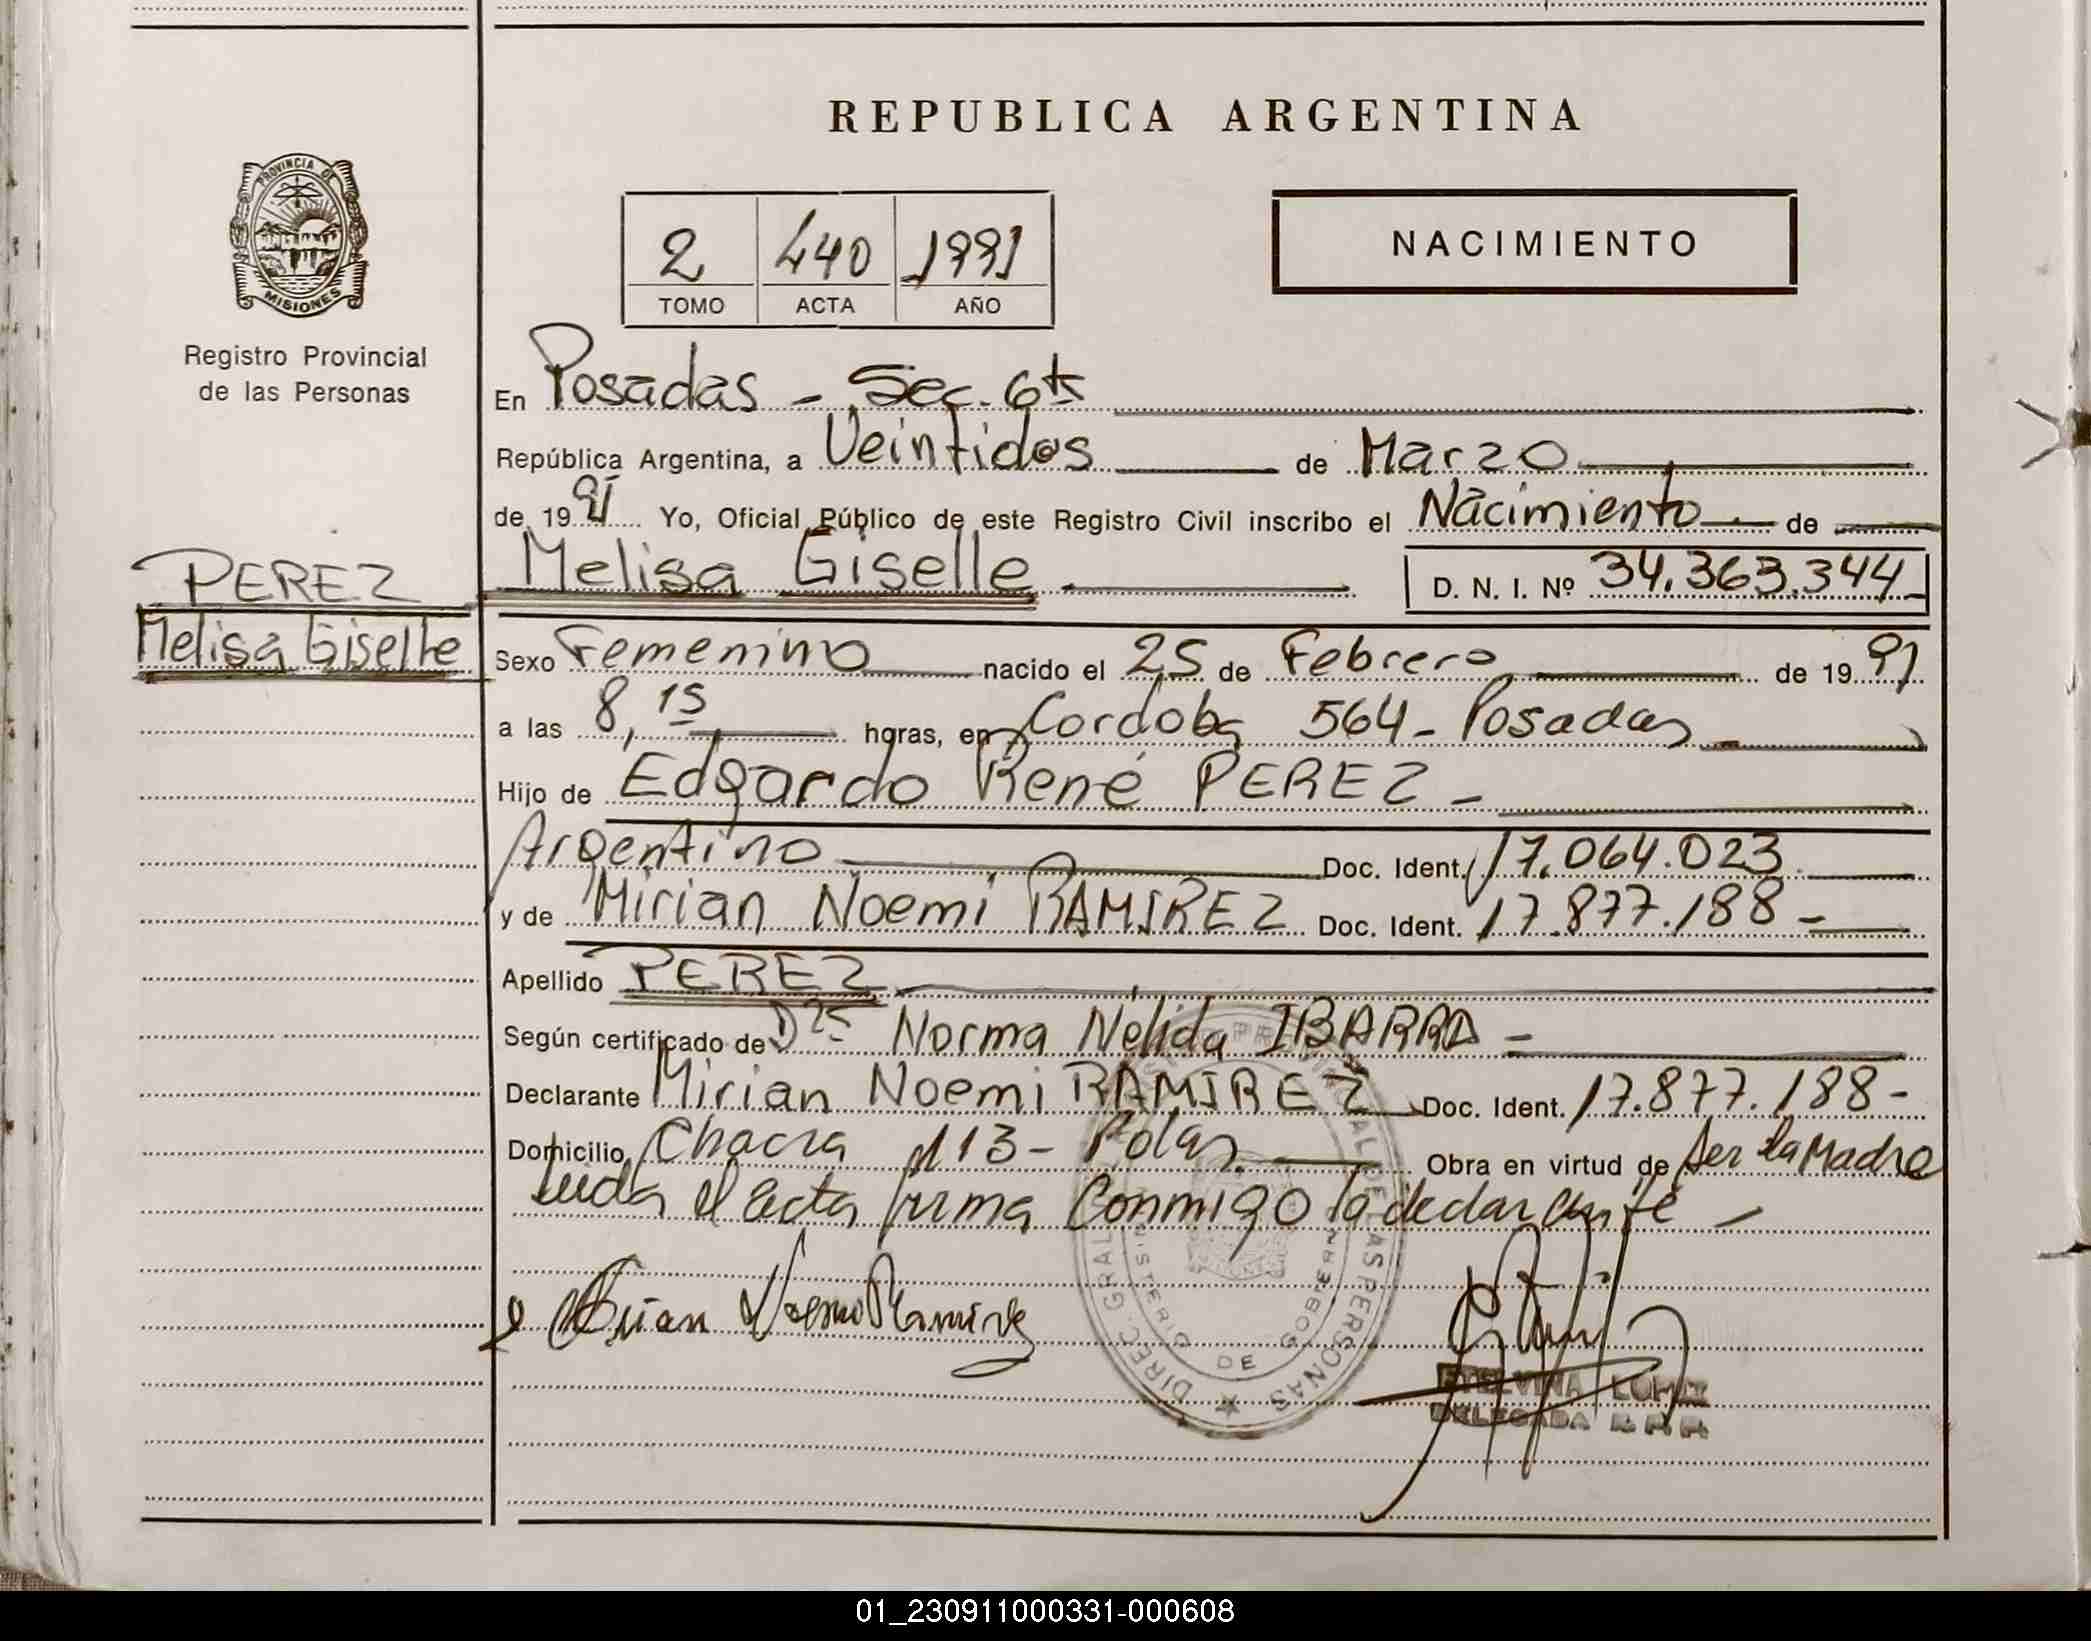 REPUBLICA ARGENTINA
PROVINCIA DE
MISIONES
Registro Provincial
de las Personas
2 440 1991
TOMO ACTA AÑO
NACIMIENTO
En Posadas - Sec. 6ta
República Argentina, a Veintidos de Marzo
de 1991 Yo, Oficial Público de este Registro Civil inscribo el Nacimiento de
PEREZ
Melisa Giselle
Melisa Giselle D. N. I. Nº 34.363.344
Sexo Femenino nacido el 25 de Febrero de 1991
a las 8,15 horas, en Cordoba 564 - Posadas
Hijo de Edgardo René PEREZ -
Argentino Doc. Ident. 17.064.023
y de Mirian Noemi RAMIREZ Doc. Ident. 17.877.188 -
Apellido PEREZ
Según certificado de Norma Nélida IBARRA -
Declarante Mirian Noemi RAMIREZ Doc. Ident. 17.877.188 -
Domicilio Chacra 113 - Pdas Obra en virtud de Ser la Madre
Leida el acta firma Conmigo la declarante -
Mirian Noemi Ramirez
DIREC. GRAL. PROVINCIAL DE LAS PERSONAS
MINISTERIO DE GOBIERNO
ETELVINA LOPEZ
DELEGADA R.P.P.
01_230911000331-000608